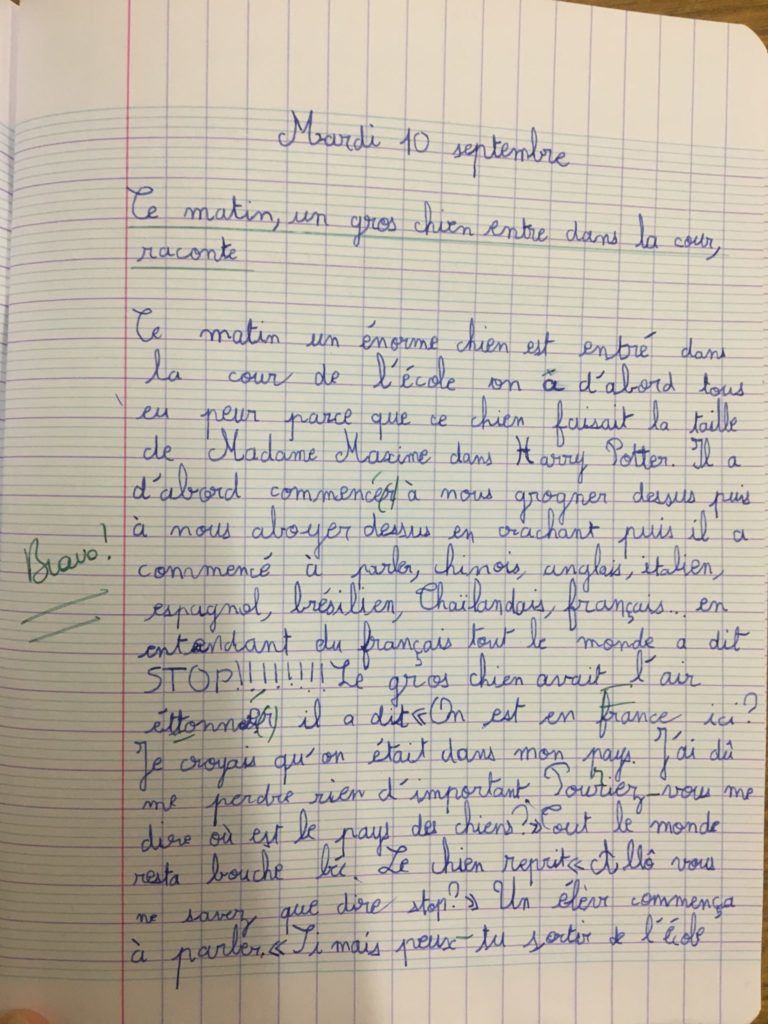 Mardi 10 septembre
Ce matin, un gros chien entre dans la cour,
raconte
Ce matin un énorme chien est entré dans
la cour de l'école on a d'abord tous
eu peur parce que ce chien faisait la taille
de Madame Maxime dans Harry Potter. Il a
d'abord commencé à nous grogner dessus puis
à nous aboyer dessus en crachant puis il a
Bravo!
commencé à parler, chinois, anglais, italien,
espagnol, brésilien, Thaïlandais, français... en
entendant du français tout le monde a dit
STOP!!!!!!!!! Le gros chien avait l'air
éttonné il a dit « On est en france ici?
Je croyais qu'on était dans mon pays. J'ai dû
me perdre rien d'important. Pourriez-vous me
dire où est le pays des chiens? » Tout le monde
resta bouche bée. Le chien reprit « Allô vous
ne savez que dire stop? » Un élève commença
à parler. « Si mais peux-tu sortir de l'école